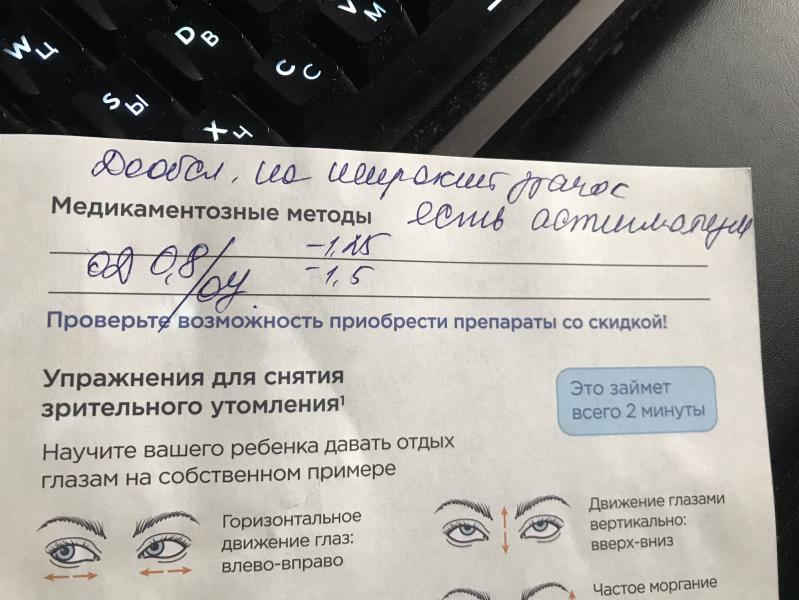 W Ц
D В
C С
V М
S Ы
X Ч
на широкий зрачок
Медикаментозные методы есть астигматизм
OD 0,8/ -1,25
OU. -1,5
Проверьте возможность приобрести препараты со скидкой!
Упражнения для снятия
зрительного утомления¹
Это займет
всего 2 минуты
Научите вашего ребенка давать отдых
глазам на собственном примере
Горизонтальное
движение глаз:
влево-вправо
Движение глазами
вертикально:
вверх-вниз
Частое моргание